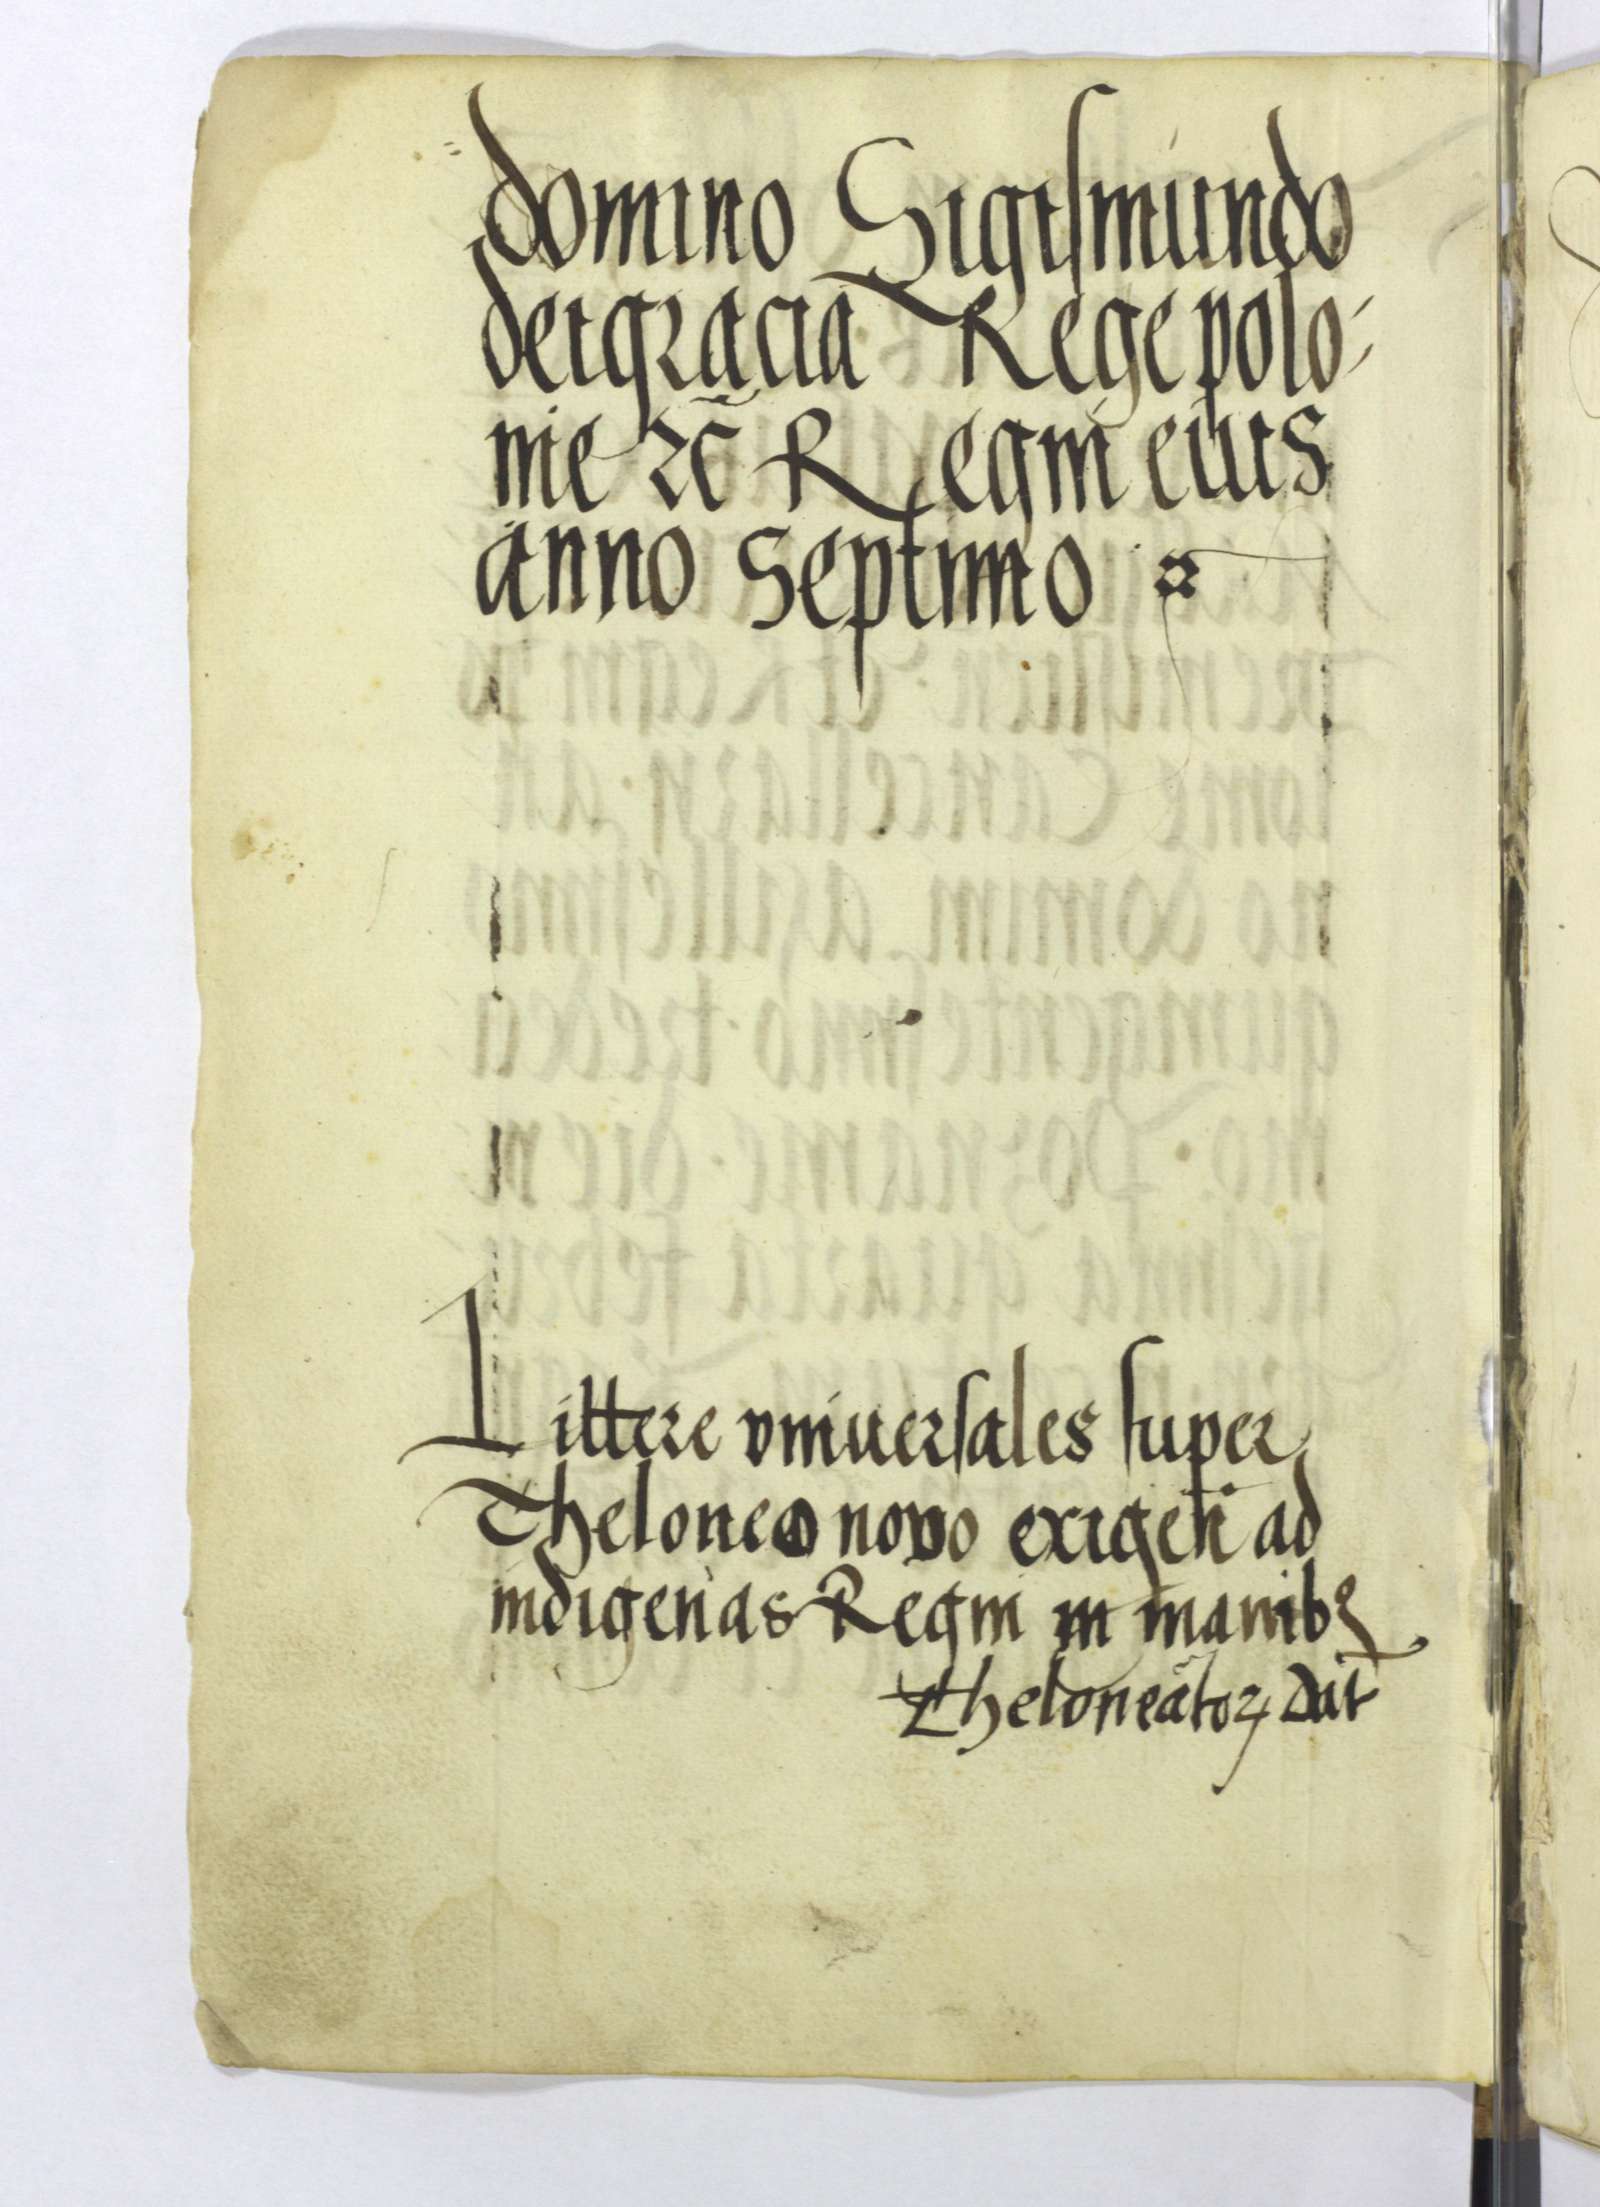 domino Sigismundo
dei gracia Rege polo
nie ꝛc̃ Regni eius
anno Septimo
Littere vniuersales super
Theloneo novo exigen̄ ad
indigenas Regni in manibꝰ
theloneatoꝝ dat̄